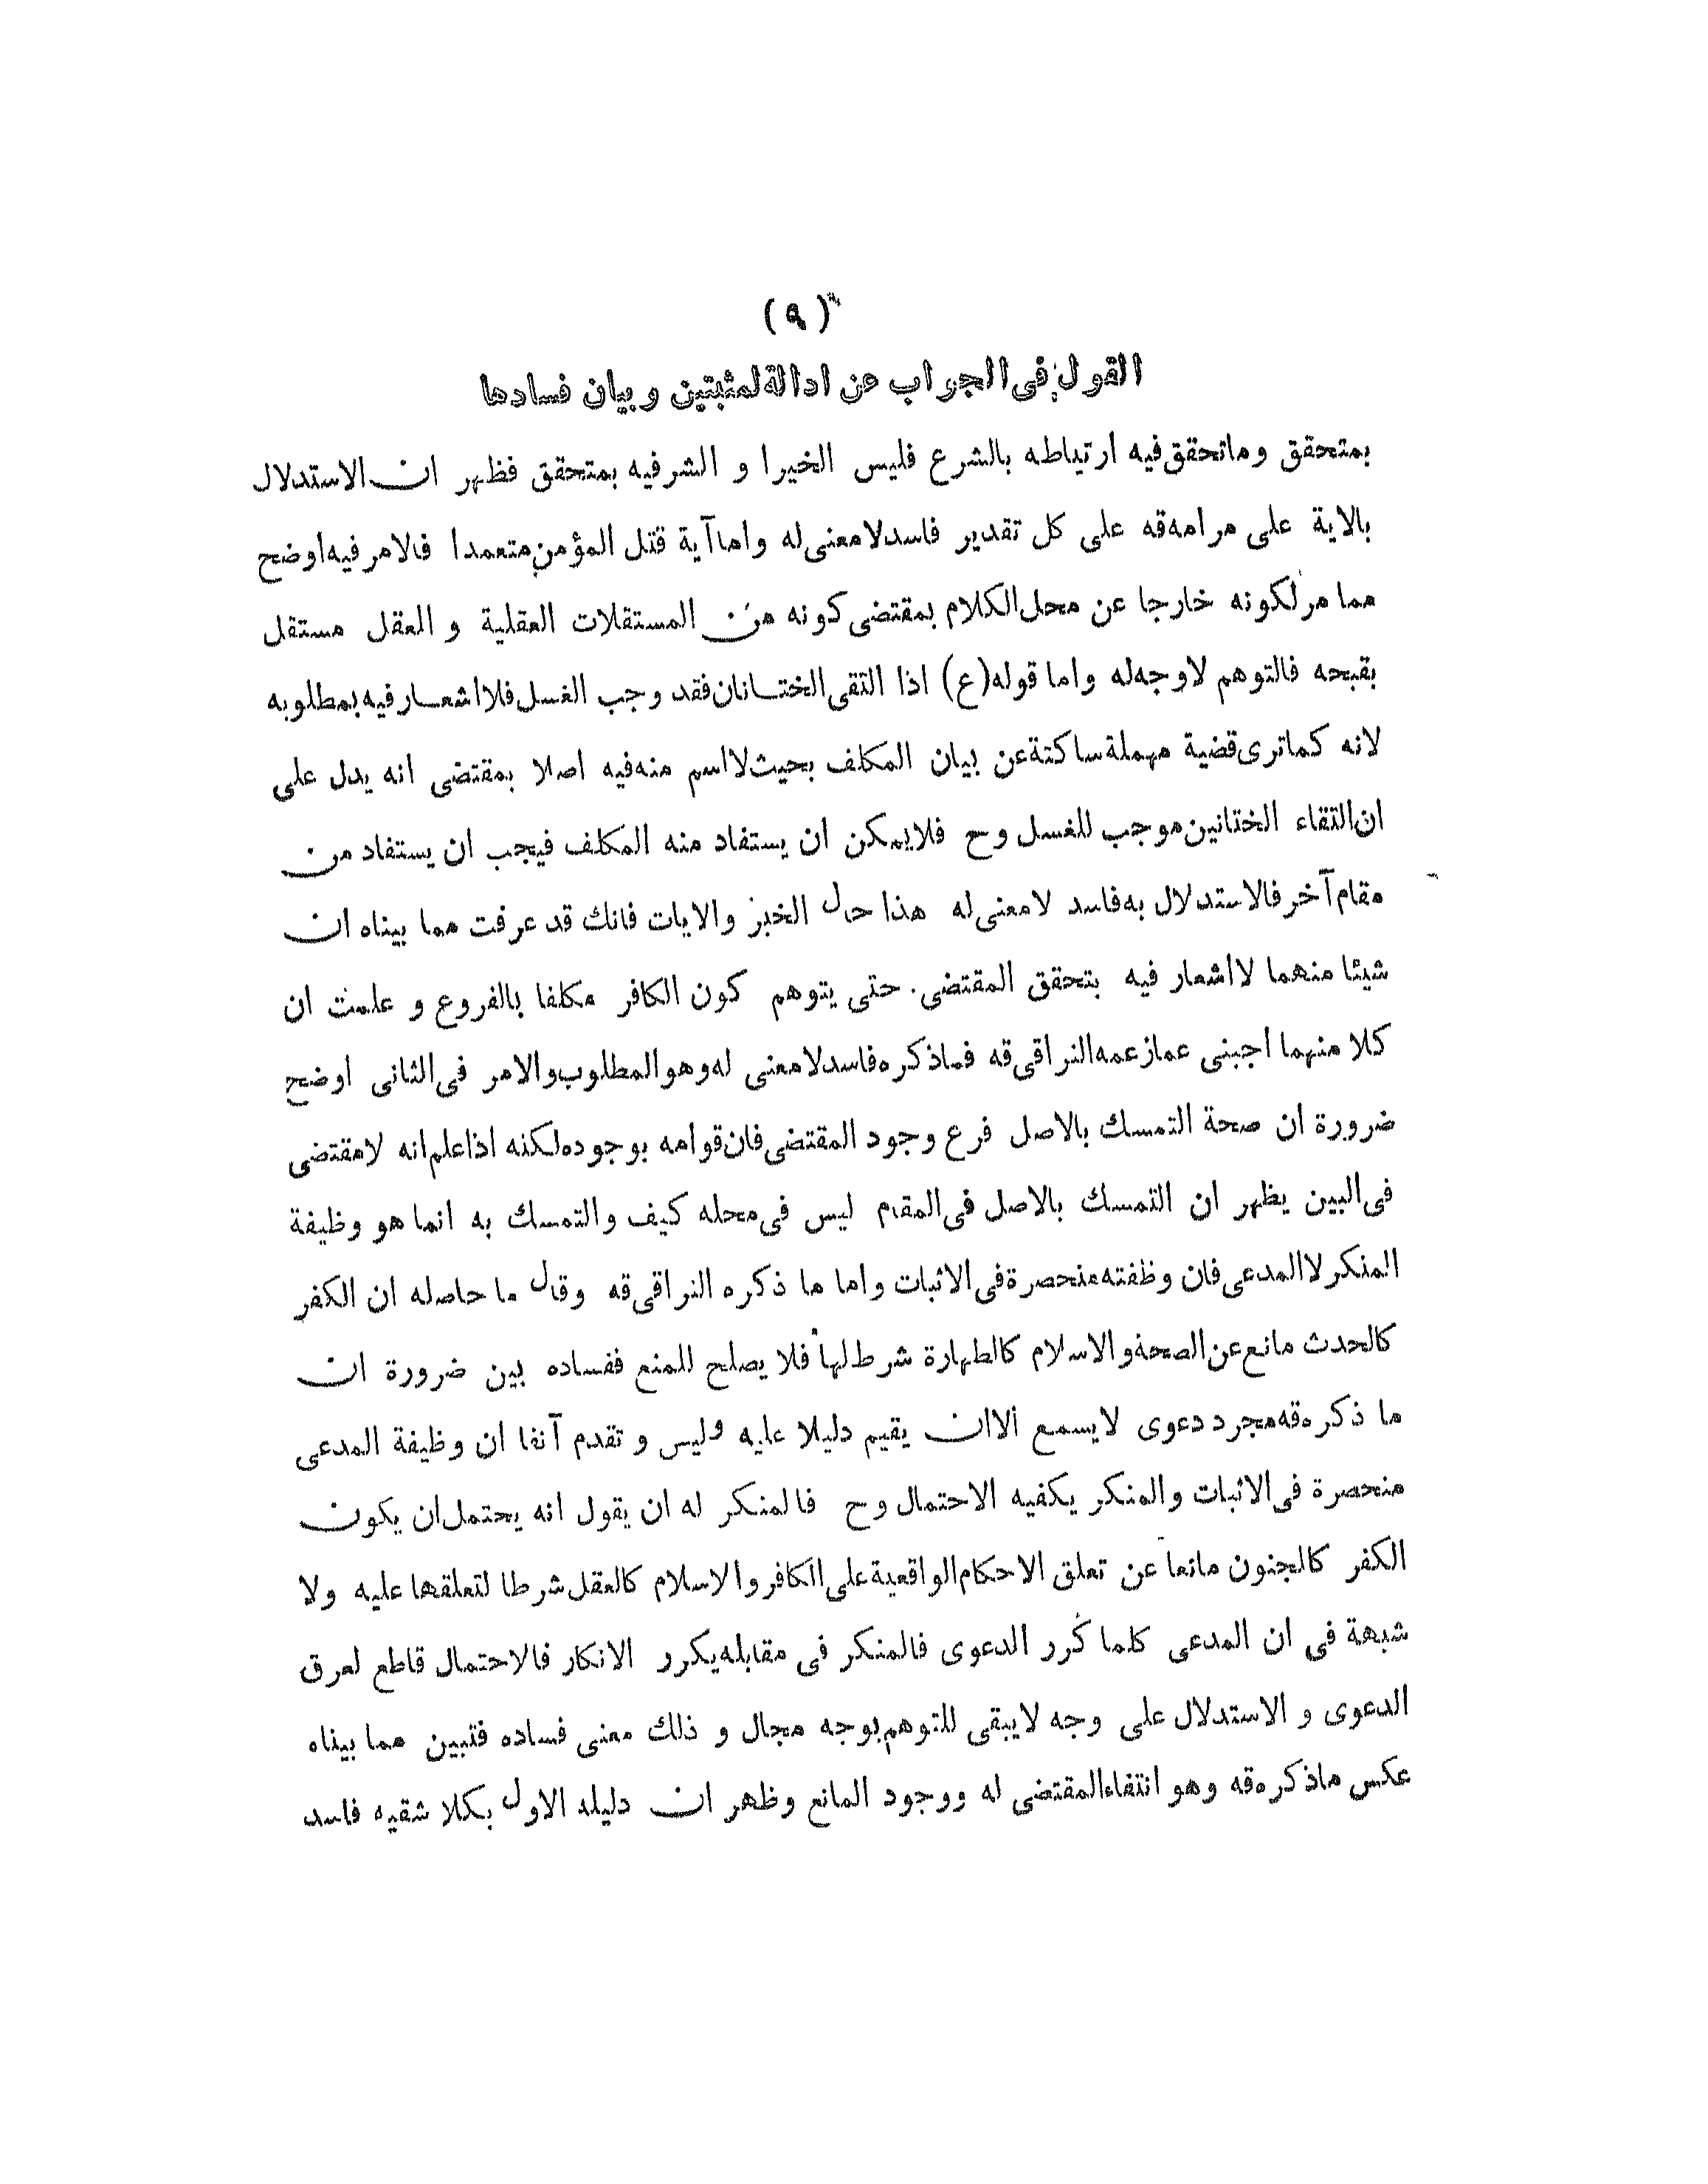 (٩)
القول فى الجراب عن ادالة لمثبتين و بيان فسادها
بمتحقق وماتحقق فيه ارتباطه بالشرع فليس الخيرا و الشر فيه بمتحقق فظهر ان الاستدلال
بالاية على مرامه قه على كل تقدير فاسد لا معنى له واما آية قتل المؤمن متعمدا فالامر فيه اوضح
مما مر لكونه خارجا عن محل الكلام بمقتضى كونه من المستقلات العقلية و العقل مستقل
بقبحه فالتوهم لاوجه له واما قوله (ع) اذا التقى الختانان فقد وجب الغسل فلا اشعار فيه بمطلوبه
لانه كماترى قضية مهملة ساكتة عن بيان المكلف بحيث لا اسم منه فيه اصلا بمقتضى انه يدل على
ان التقاء الختانين موجب للغسل وح فلايمكن ان يستفاد منه المكلف فيجب ان يستفاد من
مقام آخر فالاستدلال به فاسد لا معنى له هذا حال الخبر والايات فانك قد عرفت مما بيناه ان
شيئا منهما لا اشعار فيه بتحقق المقتضى. حتى يتوهم كون الكافر مكلفا بالفروع و علمت ان
كلا منهما اجبنى عمازعمه النراقى قه فماذكره فاسد لا معنى له وهو المطلوب والامر فى الثانى اوضح
ضرورة ان صحة التمسك بالاصل فرع وجود المقتضى فان قوامه بوجوده لكنه اذا علم انه لامقتضى
فى البين يظهر ان التمسك بالاصل فى المقام ليس فى محله كيف والتمسك به انما هو وظيفة
المنكر لا المدعى فان وظفته منحصرة فى الاثبات واما ما ذكره النراقى قه وقال ما حاصله ان الكفر
كالحدث مانع عن الصحة والاسلام كالطهارة شرط لها فلا يصلح للمنع ففساده بين ضرورة ان
ما ذكره قه مجرد دعوى لايسمع الا ان يقيم دليلا عليه وليس و تقدم آنفا ان وظيفة المدعى
منحصرة فى الاثبات والمنكر يكفيه الاحتمال وح فالمنكر له ان يقول انه يحتمل ان يكون
الكفر كالجنون مانعا عن تعلق الاحكام الواقعية على الكافر والاسلام كالعقل شرطا لتعلقها عليه ولا
شبهة فى ان المدعى كلما كرر الدعوى فالمنكر فى مقابله يكرر الانكار فالاحتمال قاطع لعرق
الدعوى و الاستدلال على وجه لايبقى للتوهم بوجه مجال و ذلك معنى فساده فتبين مما بيناه
عكس ماذكره قه وهو انتفاء المقتضى له ووجود المانع وظهر ان دليله الاول بكلا شقيه فاسد